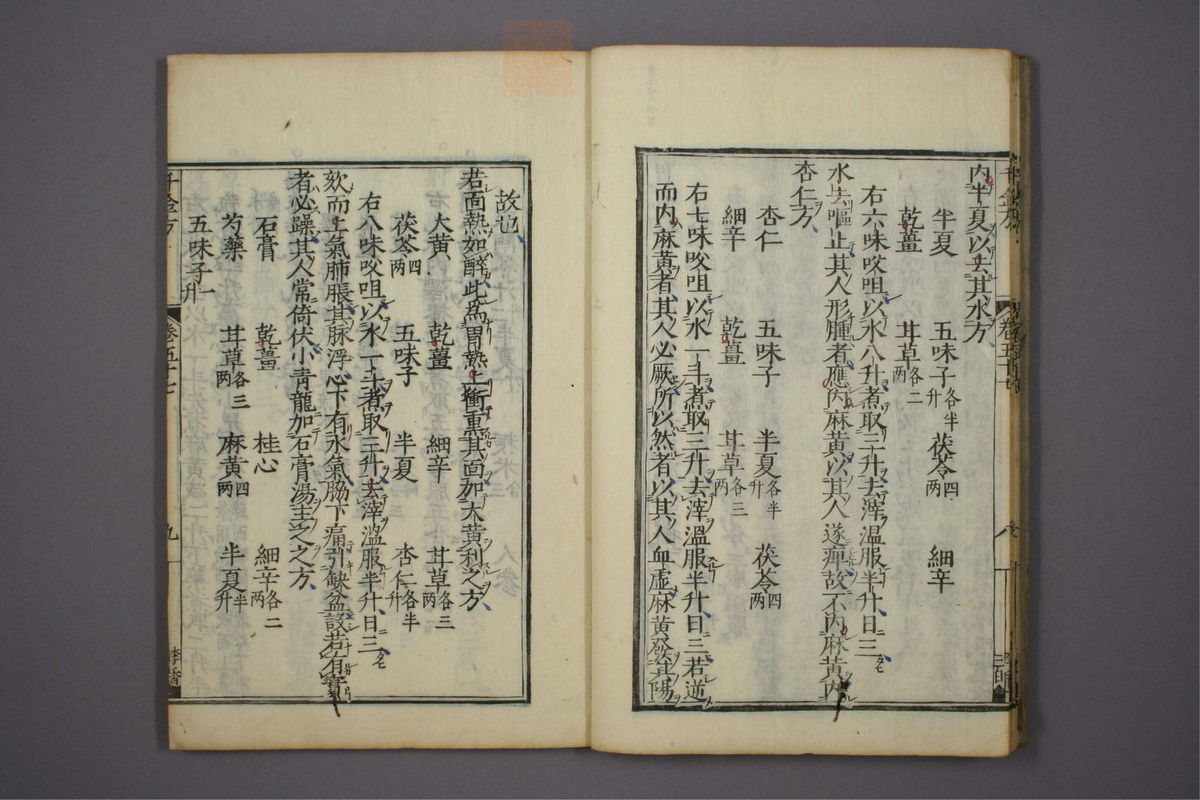 内半夏以去其水方
半夏 五味子各半升 茯苓四两 細辛
乾薑 甘草各二两
右六味㕮咀以水八升煮取三升去滓溫服半升日三
水去嘔止其人形腫者應內麻黃以其人遂痺故不內麻黃內
杏仁方
杏仁 五味子 半夏各半升 茯苓四两
細辛 乾薑 甘草各三两
右七味㕮咀以水一斗煮取三升去滓溫服半升日三若逆
而內麻黃者其人必厥所以然者以其人血虛麻黃發其陽
故也
若面熱如醉此爲胃熱上衝熏其面加大黃利之方
大黃 乾薑 細辛 甘草各三两
茯苓四两 五味子 半夏 杏仁各半升
右八味㕮咀以水一斗煮取三升去滓溫服半升日三
欬而上氣肺脹其脉浮心下有水氣脇下痛引缺盆設若有實
者必躁其人常倚伏小青龍加石膏湯主之之方
石膏 乾薑 桂心 細辛各二两
芍藥 甘草各三两 麻黃四两 半夏半升
五味子一升
千金方 卷五十七 九 李